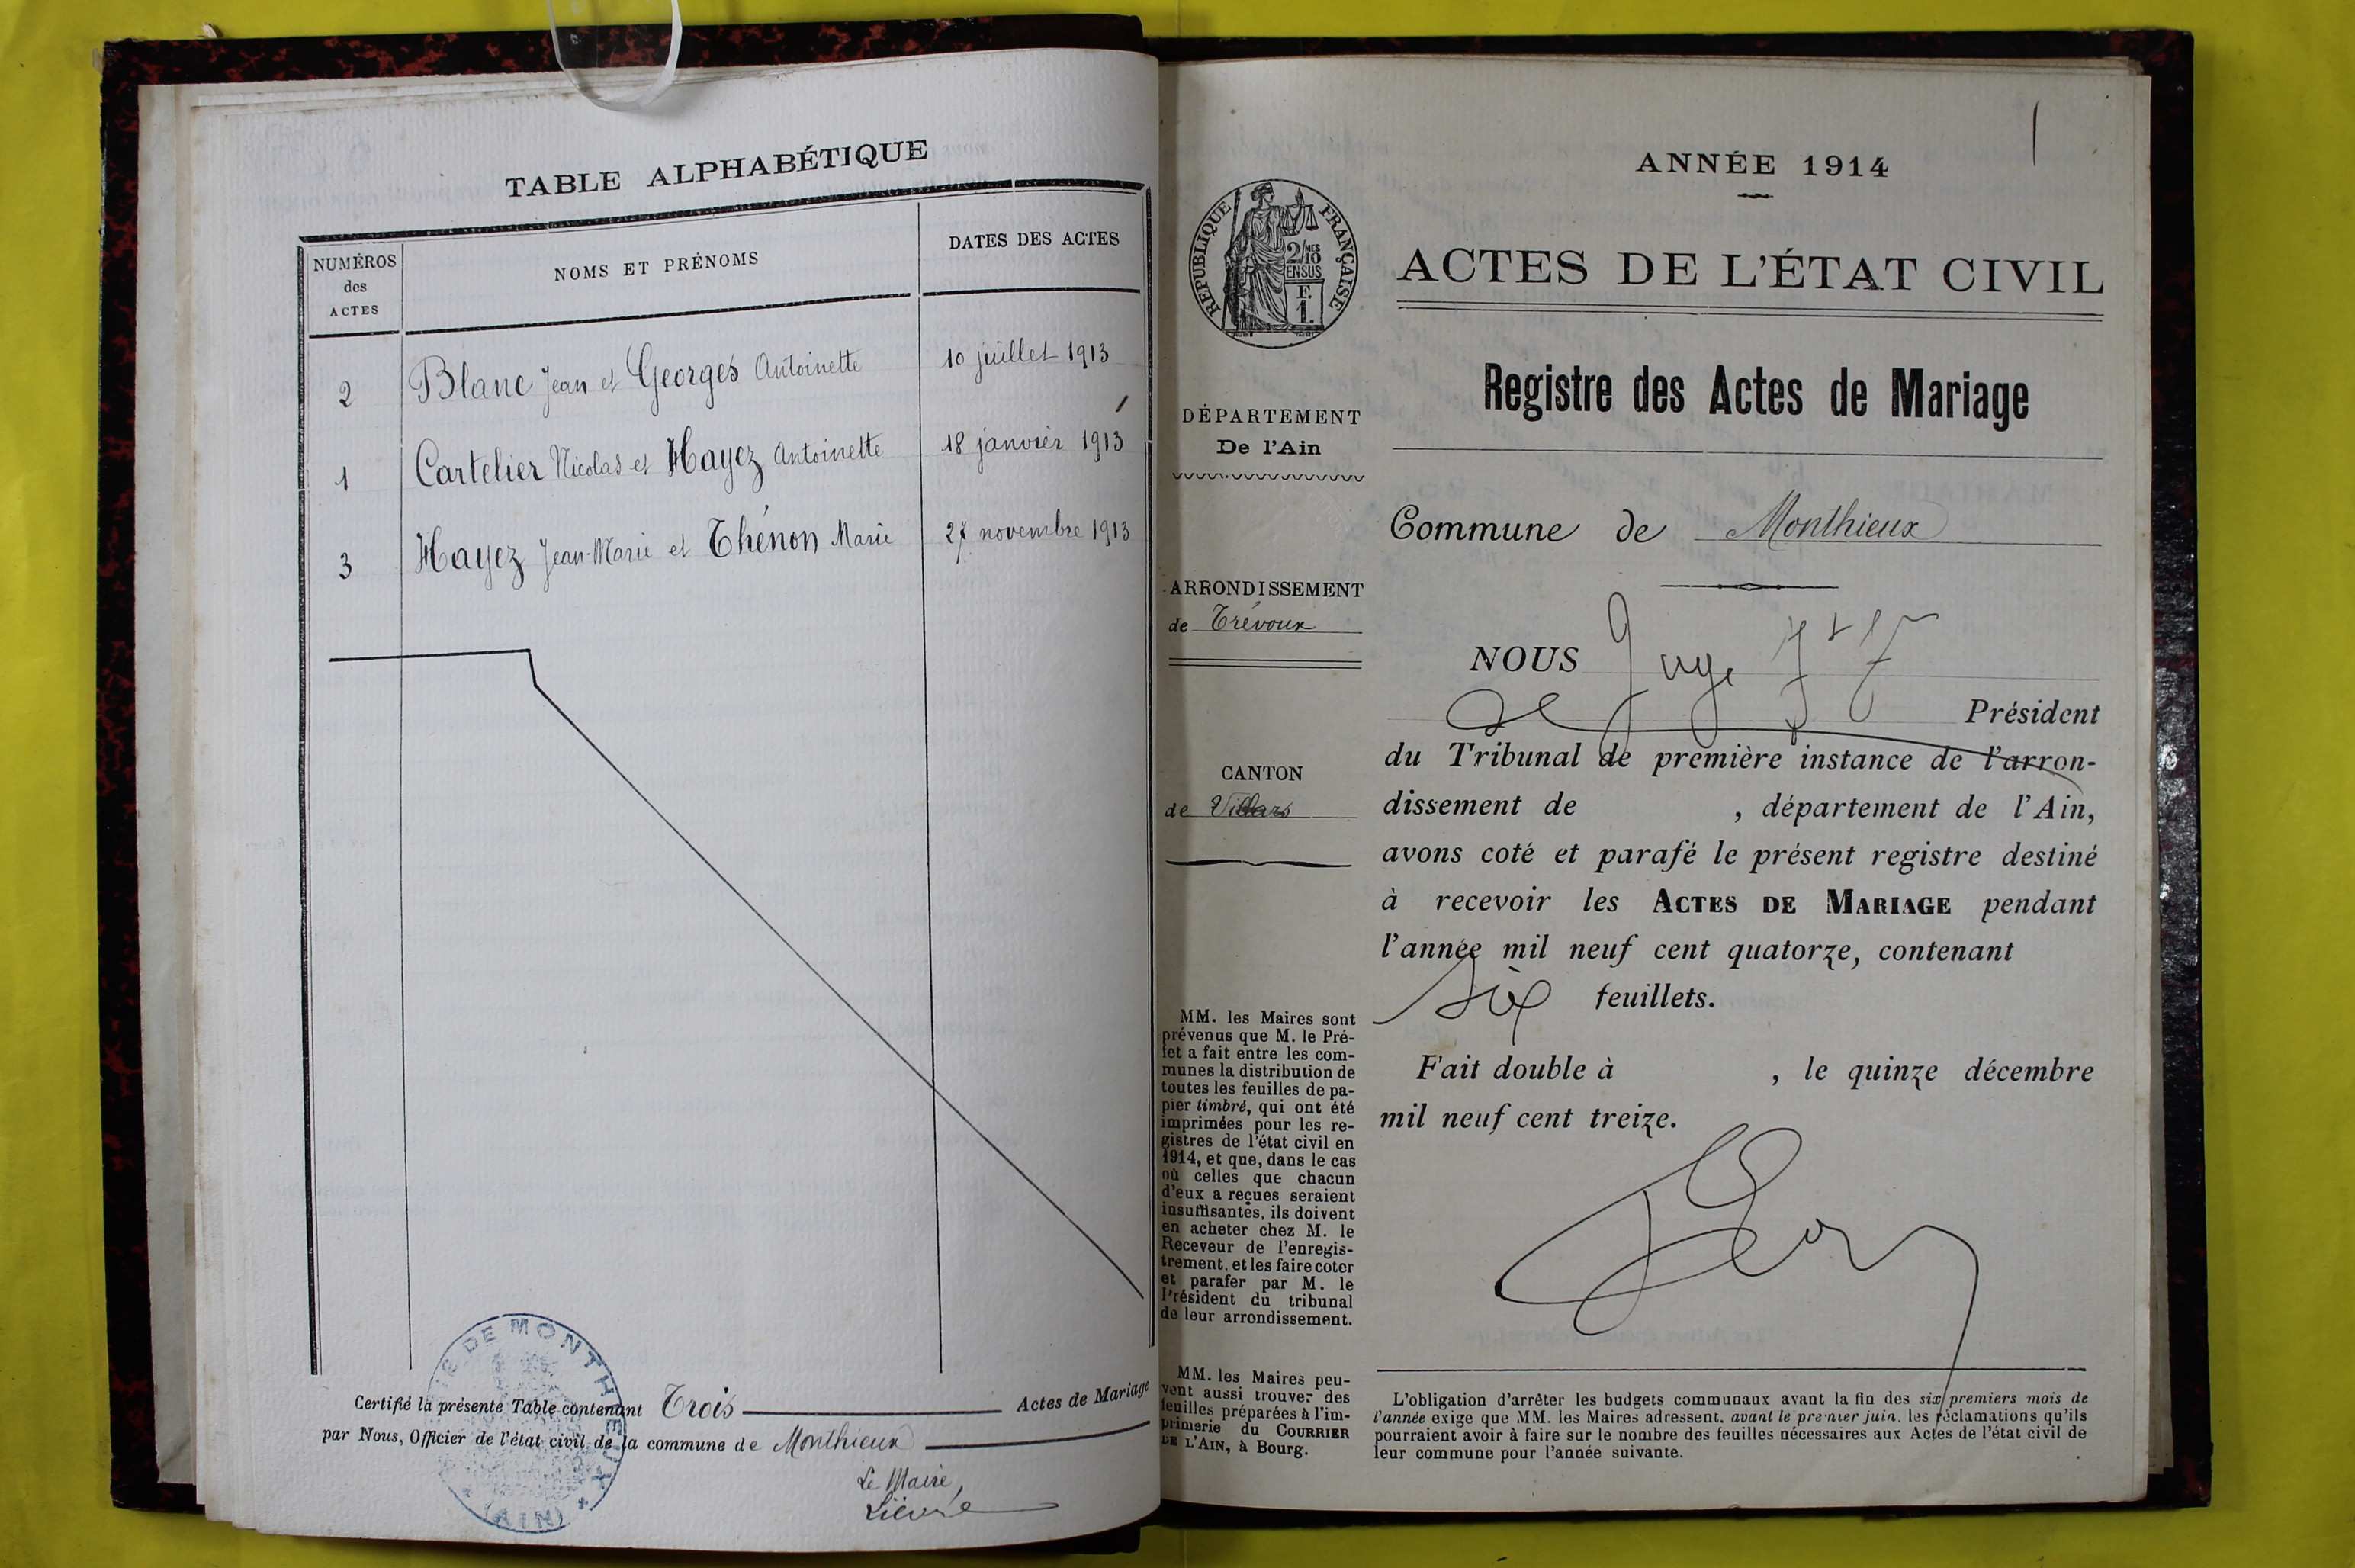 TABLE ALPHABÉTIQUE
NUMÉROS
des
ACTES
NOMS ET PRÉNOMS
DATES DES ACTES
2 Blanc Jean et Georges Antoinette 10 juillet 1913
1 Cartelier Nicolas et Hayez Antoinette 18 janvier 1913
3 Hayez Jean-Marie et Thénon Marie 27 novembre 1913
MAIRIE DE MONTHIEUX
(AIN)
Certifié la présente Table contenant Trois Actes de Mariage
par Nous, Officier de l'état civil de la commune de Monthieux
Le Maire,
Lièvre
ANNÉE 1914
RÉPUBLIQUE FRANÇAISE
2/10MES
EN SUS
F.
1.
ACTES DE L'ÉTAT CIVIL
Registre des Actes de Mariage
DÉPARTEMENT
De l'Ain
Commune de Monthieux
ARRONDISSEMENT
de Trévoux
CANTON
de Villars
NOUS Juge
Président
du Tribunal de première instance de l'arron-
dissement de , département de l'Ain,
avons coté et parafé le présent registre destiné
à recevoir les ACTES DE MARIAGE pendant
l'année mil neuf cent quatorze, contenant
six feuillets.
Fait double à , le quinze décembre
mil neuf cent treize.
MM. les Maires sont
prévenus que M. le Pré-
fet a fait entre les com-
munes la distribution de
toutes les feuilles de pa-
pier timbré, qui ont été
imprimées pour les re-
gistres de l'état civil en
1914, et que, dans le cas
où celles que chacun
d'eux a reçues seraient
insuffisantes, ils doivent
en acheter chez M. le
Receveur de l'enregis-
trement, et les faire coter
et parafer par M. le
Président du tribunal
de leur arrondissement.
MM. les Maires peu-
vent aussi trouver des
feuilles préparées à l'im-
primerie du COURRIER
DE L'AIN, à Bourg.
L'obligation d'arrêter les budgets communaux avant la fin des six premiers mois de
l'année exige que MM. les Maires adressent, avant le premier juin, les réclamations qu'ils
pourraient avoir à faire sur le nombre des feuilles nécessaires aux Actes de l'état civil de
leur commune pour l'année suivante.